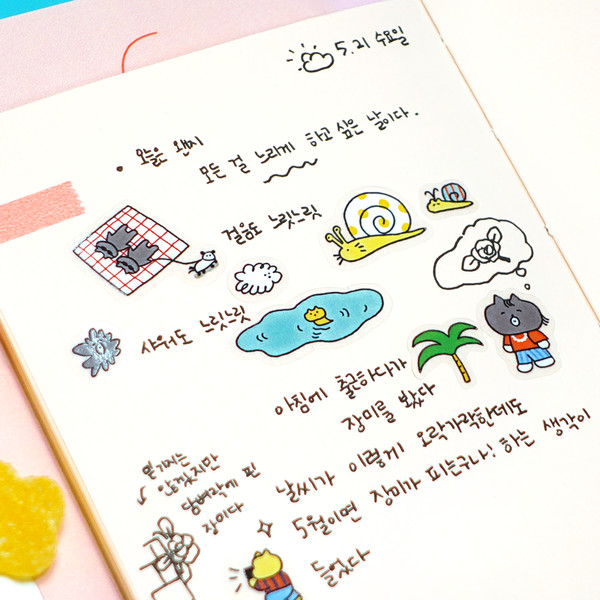 5.21 수요일
오늘은 왠지
모든 걸 느리게 하고 싶은 날이다.
걸음도 느릿느릿
샤워도 느릿느릿
아침에 출근하다가
장미를 봤다
날씨가 이렇게 오락가락한데도
5월이면 장미가 피는구나! 하는 생각이
들었다
믿기지는
않겠지만
담벼락에 핀
장미다